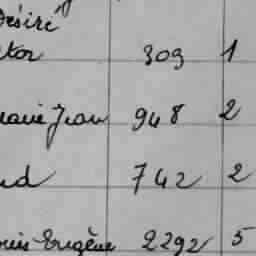 Désiré
ctor 309 1
marie Jean 948 2
nd 742 2
ouis Eugène 2292 5